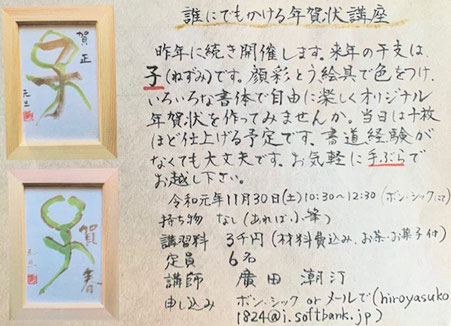 誰にでもかける年賀状講座
昨年に続き開催します。来年の干支は、
子(ねずみ)です。顔彩という絵具で色をつけ、
いろいろな書体で自由に楽しくオリジナル
年賀状を作ってみませんか。当日は十枚
ほど仕上げる予定です。書道経験が
なくても大丈夫です。お気軽に手ぶらで
お越し下さい。
令和元年11月30日(土)10:30~12:30(ボン・シックにて)
持ち物 なし(あれば、小筆)
講習料 3千円(材料費込み、お茶・お菓子付)
定員 6名
講師 廣田 潮汀
申し込み ボン・シック or メールで(hiroyasuko
1824@i.softbank.jp)
賀正
子
賀春
子